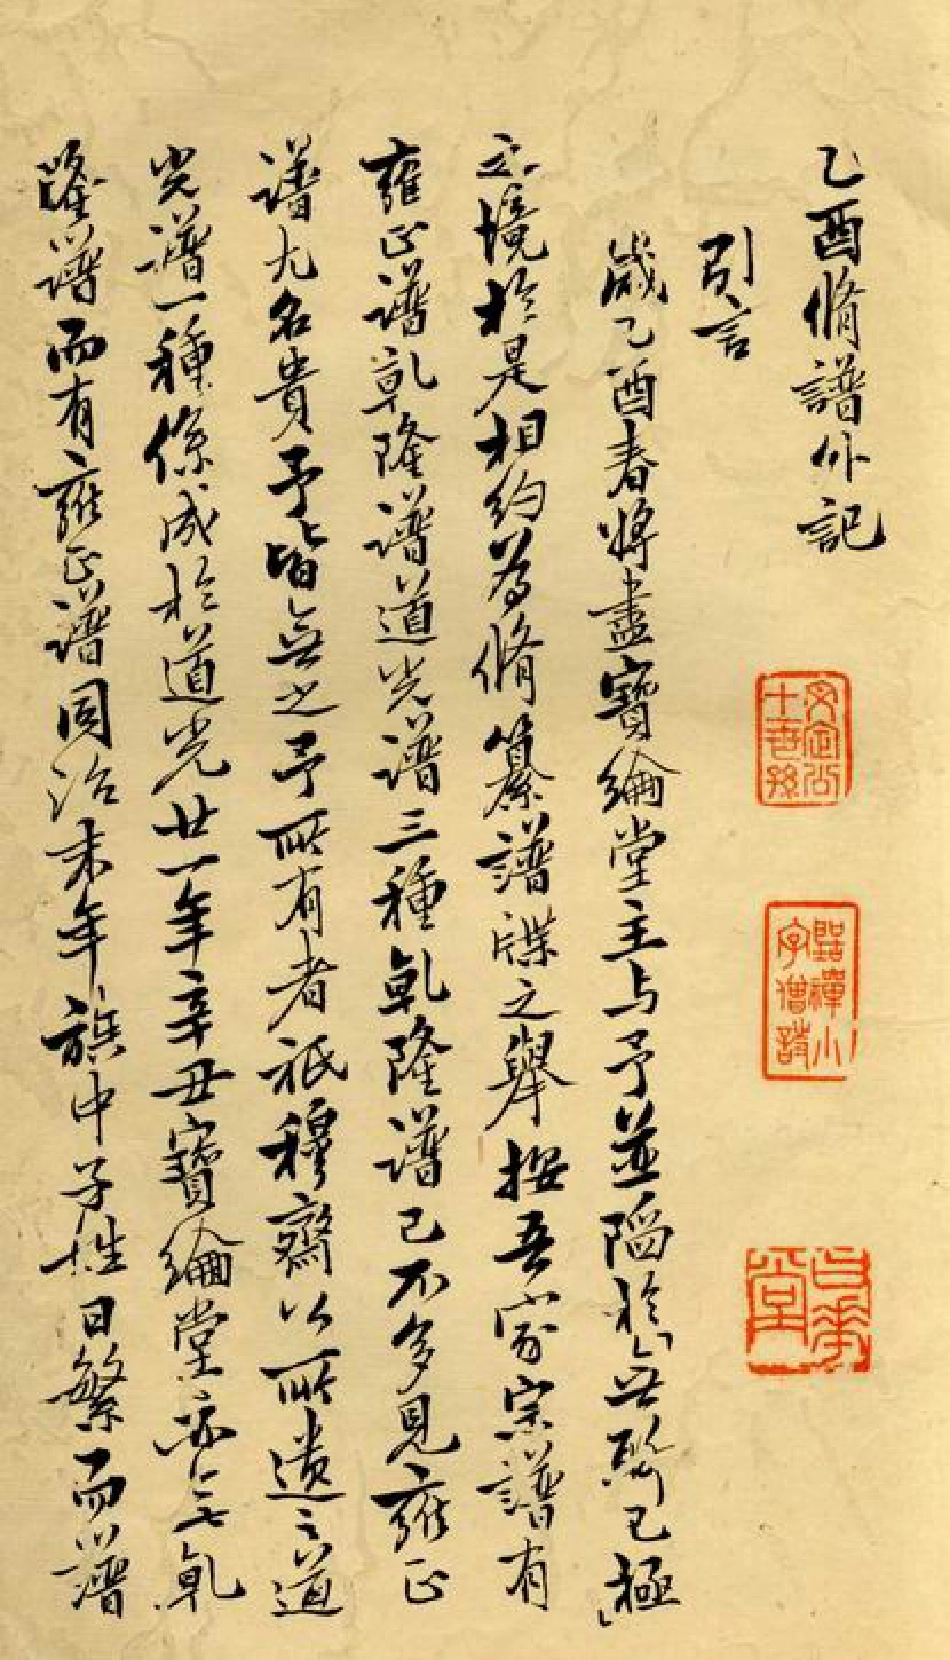 乙酉脩譜外記
引言
歲乙酉春將盡寶綸堂主与予並陷於無聊已極
之境於是相約為脩纂譜牒之舉按吾家宗譜有
雍正譜乾隆譜道光譜三種乾隆譜已不多見雍正
譜尤名貴予皆無之予所有者祇穆齋以所遺之道
光譜一種係成於道光廿一年辛丑寶綸堂亦無乾
隆譜而有雍正譜同治末年族中子姓日繁而譜
文定公十世孫
點禪小字僧詩
堂